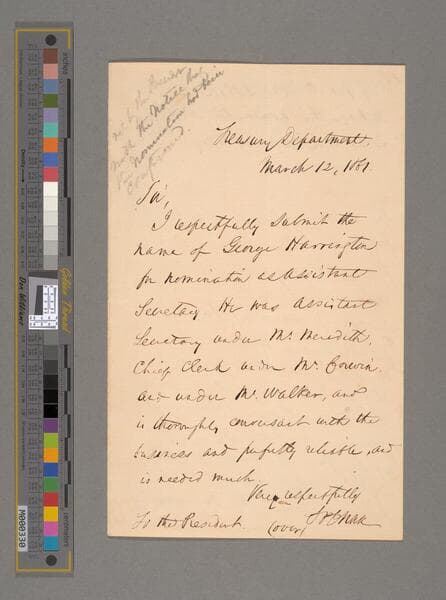 the Notice has
the nomination had been
confirmed
Treasury Department,
March 12, 1861.
Sir,
I respectfully submit the
name of George Harrington
for nomination as Assistant
Secretary. He was Assistant
Secretary under Mr. Meredith,
Chief Clerk under Mr. Corwin,
and under Mr. Walker, and
is thoroughly conversant with the
business and perfectly reliable, and
is needed much.
Very respectfully
To the President
(over)
S P Chase
inches
centimeters
Golden Thread
Don Williams
Density
M000330